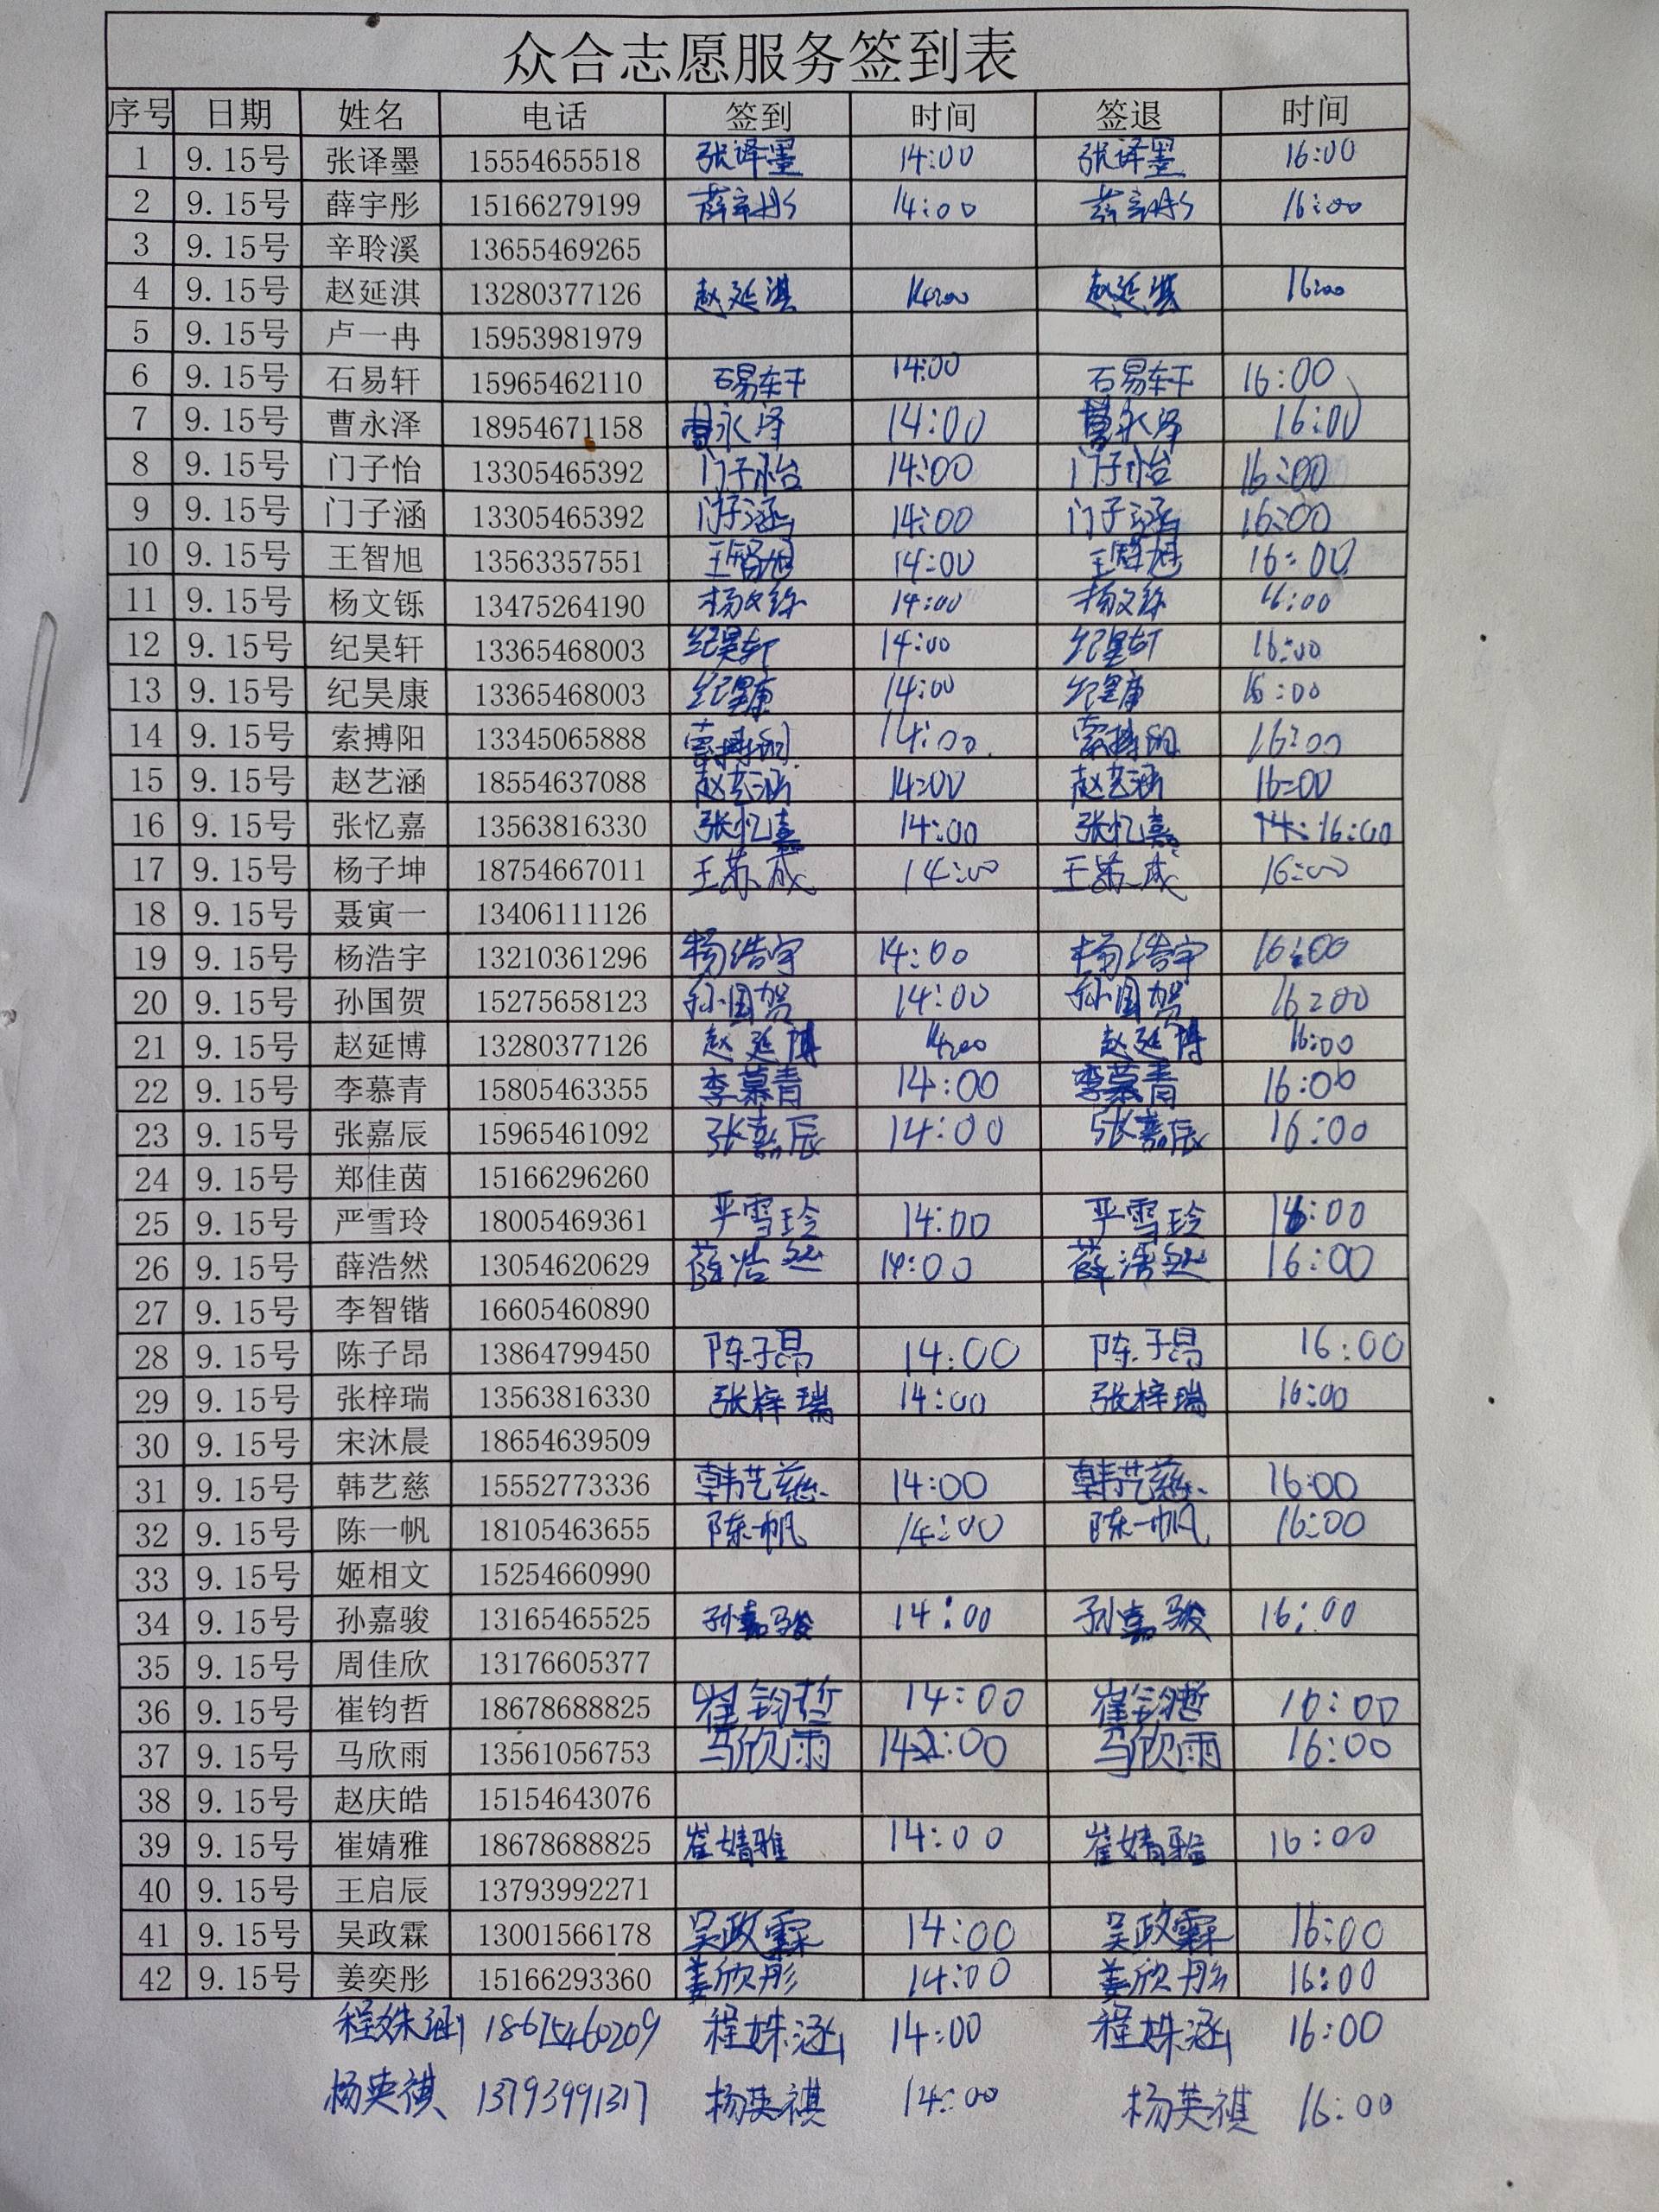 众合志愿服务签到表
序号 日期 姓名 电话 签到 时间 签退 时间
1 9.15号 张译墨 15554655518 张译墨 14:00 张译墨 16:00
2 9.15号 薛宇彤 15166279199 薛宇彤 14:00 薛宇彤 16:00
3 9.15号 辛聆溪 13655469265
4 9.15号 赵延淇 13280377126 赵延淇 14:00 赵延淇 16:00
5 9.15号 卢一冉 15953981979
6 9.15号 石易轩 15965462110 石易轩 14:00 石易轩 16:00
7 9.15号 曹永泽 18954671158 曹永泽 14:00 曹永泽 16:00
8 9.15号 门子怡 13305465392 门子怡 14:00 门子怡 16:00
9 9.15号 门子涵 13305465392 门子涵 14:00 门子涵 16:00
10 9.15号 王智旭 13563357551 王智旭 14:00 王智旭 16:00
11 9.15号 杨文铄 13475264190 杨文铄 14:00 杨文铄 16:00
12 9.15号 纪昊轩 13365468003 纪昊轩 14:00 纪昊轩 16:00
13 9.15号 纪昊康 13365468003 纪昊康 14:00 纪昊康 16:00
14 9.15号 索搏阳 13345065888 索搏阳 14:00 索搏阳 16:00
15 9.15号 赵艺涵 18554637088 赵艺涵 14:00 赵艺涵 16:00
16 9.15号 张忆嘉 13563816330 张忆嘉 14:00 张忆嘉 16:00
17 9.15号 杨子坤 18754667011 王苏成 14:00 王苏成 16:00
18 9.15号 聂寅一 13406111126
19 9.15号 杨浩宇 13210361296 杨浩宇 14:00 杨浩宇 16:00
20 9.15号 孙国贺 15275658123 孙国贺 14:00 孙国贺 16:00
21 9.15号 赵延博 13280377126 赵延博 14:00 赵延博 16:00
22 9.15号 李慕青 15805463355 李慕青 14:00 李慕青 16:00
23 9.15号 张嘉辰 15965461092 张嘉辰 14:00 张嘉辰 16:00
24 9.15号 郑佳茵 15166296260
25 9.15号 严雪玲 18005469361 严雪玲 14:00 严雪玲 16:00
26 9.15号 薛浩然 13054620629 薛浩然 14:00 薛浩然 16:00
27 9.15号 李智锴 16605460890
28 9.15号 陈子昂 13864799450 陈子昂 14:00 陈子昂 16:00
29 9.15号 张梓瑞 13563816330 张梓瑞 14:00 张梓瑞 16:00
30 9.15号 宋沐晨 18654639509
31 9.15号 韩艺慈 15552773336 韩艺慈 14:00 韩艺慈 16:00
32 9.15号 陈一帆 18105463655 陈一帆 14:00 陈一帆 16:00
33 9.15号 姬相文 15254660990
34 9.15号 孙嘉骏 13165465525 孙嘉骏 14:00 孙嘉骏 16:00
35 9.15号 周佳欣 13176605377
36 9.15号 崔钧哲 18678688825 崔钧哲 14:00 崔钧哲 16:00
37 9.15号 马欣雨 13561056753 马欣雨 14:00 马欣雨 16:00
38 9.15号 赵庆皓 15154643076
39 9.15号 崔婧雅 18678688825 崔婧雅 14:00 崔婧雅 16:00
40 9.15号 王启辰 13793992271
41 9.15号 吴政霖 13001566178 吴政霖 14:00 吴政霖 16:00
42 9.15号 姜奕彤 15166293360 姜欣彤 14:00 姜欣彤 16:00
程姝涵 程姝涵 14:00 程姝涵 16:00
杨英祺 13793991317 杨英祺 14:00 杨英祺 16:00